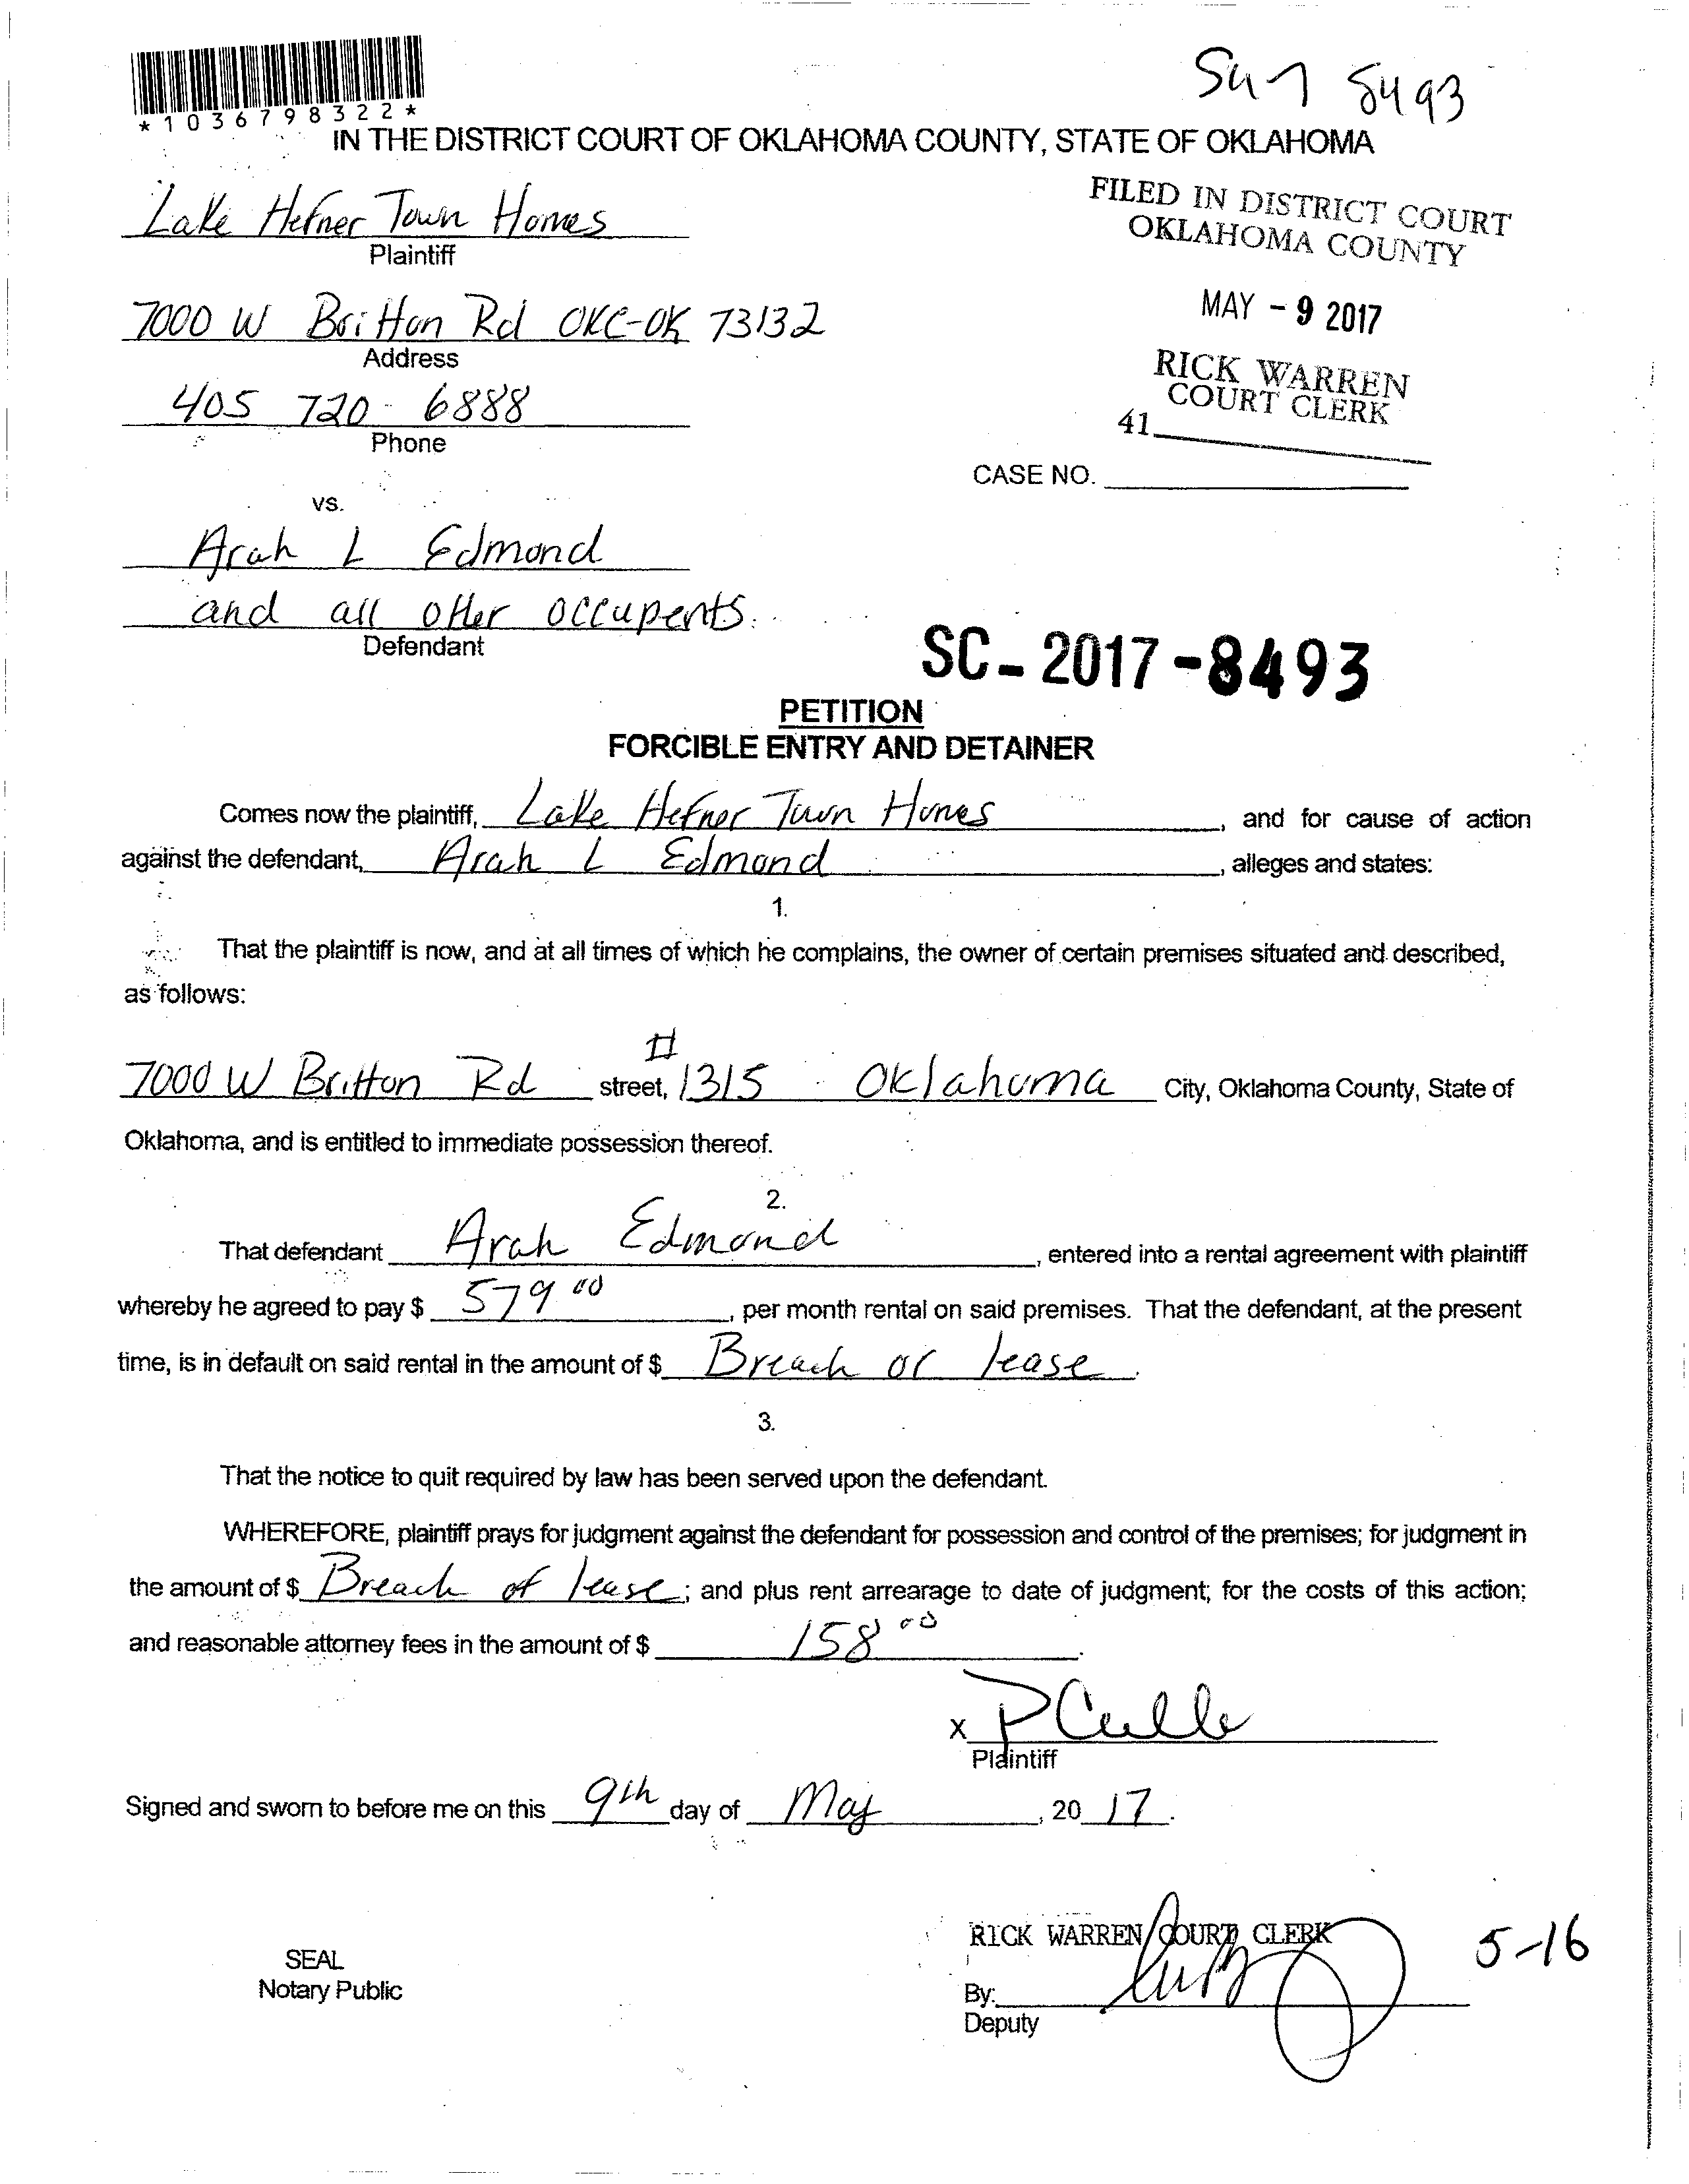 *1036798322*
8493
IN THE DISTRICT COURT OF OKLAHOMA COUNTY, STATE OF OKLAHOMA
Lake Hefner Town Homes
Plaintiff
FILED IN DISTRICT COURT
OKLAHOMA COUNTY
7000 W Britton Rd OKC-OK 73132
Address
MAY - 9 2017
RICK WARREN
COURT CLERK
405 720 6888
Phone
41
CASE NO.
vs.
Arah L Edmond
and all other occupents.
Defendant
SC- 2017-8493
PETITION
FORCIBLE ENTRY AND DETAINER
Comes now the plaintiff, Lake Hefner Town Homes, and for cause of action
against the defendant, Arah L Edmond, alleges and states:
1.
That the plaintiff is now, and at all times of which he complains, the owner of certain premises situated and described,
as follows:
7000 W Britton Rd street, #1315 Oklahoma City, Oklahoma County, State of
Oklahoma, and is entitled to immediate possession thereof.
2.
That defendant Arah Edmond, entered into a rental agreement with plaintiff
whereby he agreed to pay $ 579 00, per month rental on said premises. That the defendant, at the present
time, is in default on said rental in the amount of $ Breach or lease.
3.
That the notice to quit required by law has been served upon the defendant.
WHEREFORE, plaintiff prays for judgment against the defendant for possession and control of the premises; for judgment in
the amount of $ Breach of lease; and plus rent arrearage to date of judgment; for the costs of this action;
and reasonable attorney fees in the amount of $ 158 00.
x
Plaintiff
Signed and sworn to before me on this 9th day of May, 20 17.
RICK WARREN COURT CLERK
5-16
SEAL
Notary Public
By:
Deputy